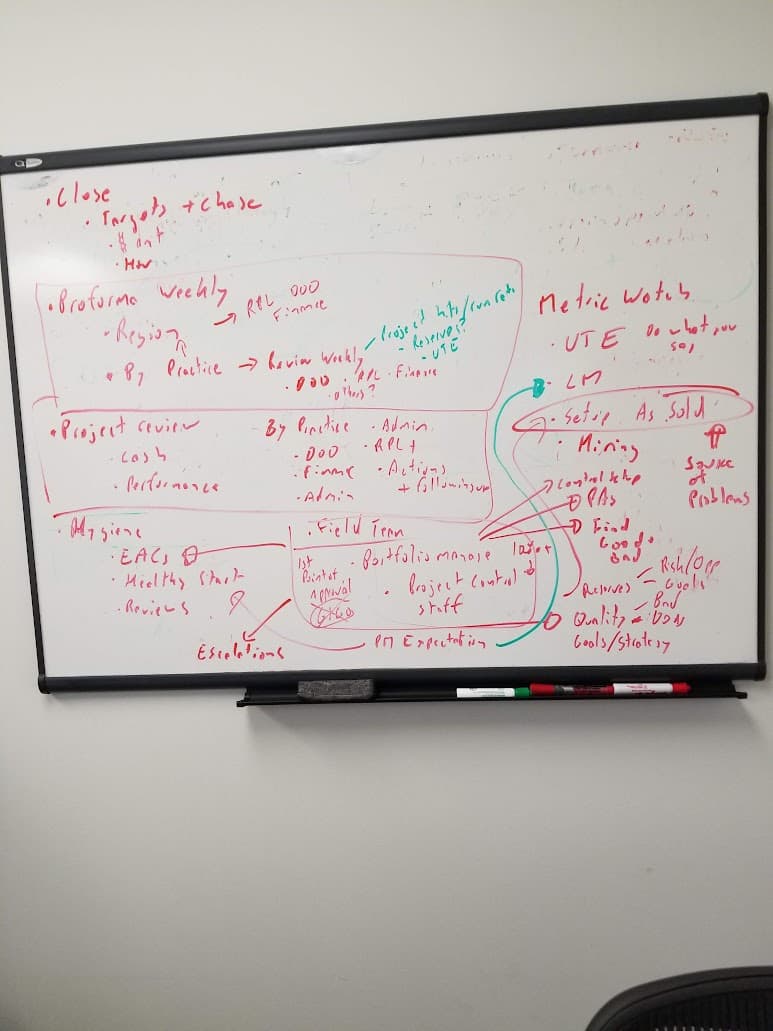 · Close
· Targets + Chase
· $ amt
· How
· Proforma Weekly
→ RPL DOO
Finance
· Region
· By Practice → Review Weekly
· DOO · RPL · Finance
· others?
- Reserves?
- UTE
· Project review
· Cash
· Performance
By Practice
· DOO
· Finance
· Admin
· Admin
· RPL +
· Actions
+ following up
· Hygiene
· EACs
· Healthy Start
· Reviews
Escalations
· Field Team
1st
Point of
Approval
· Portfolio manage
· Project Control
staff
PM Expectation
Metric Watch
· UTE Do what you
say
· LM
· Setup As Sold
Source
of
Problems
· Mining
Control setup
PAs
Find
Good +
Bad
Reserves - Risk/Opp
- Goals
Quality - Bad
Goals/Strategy